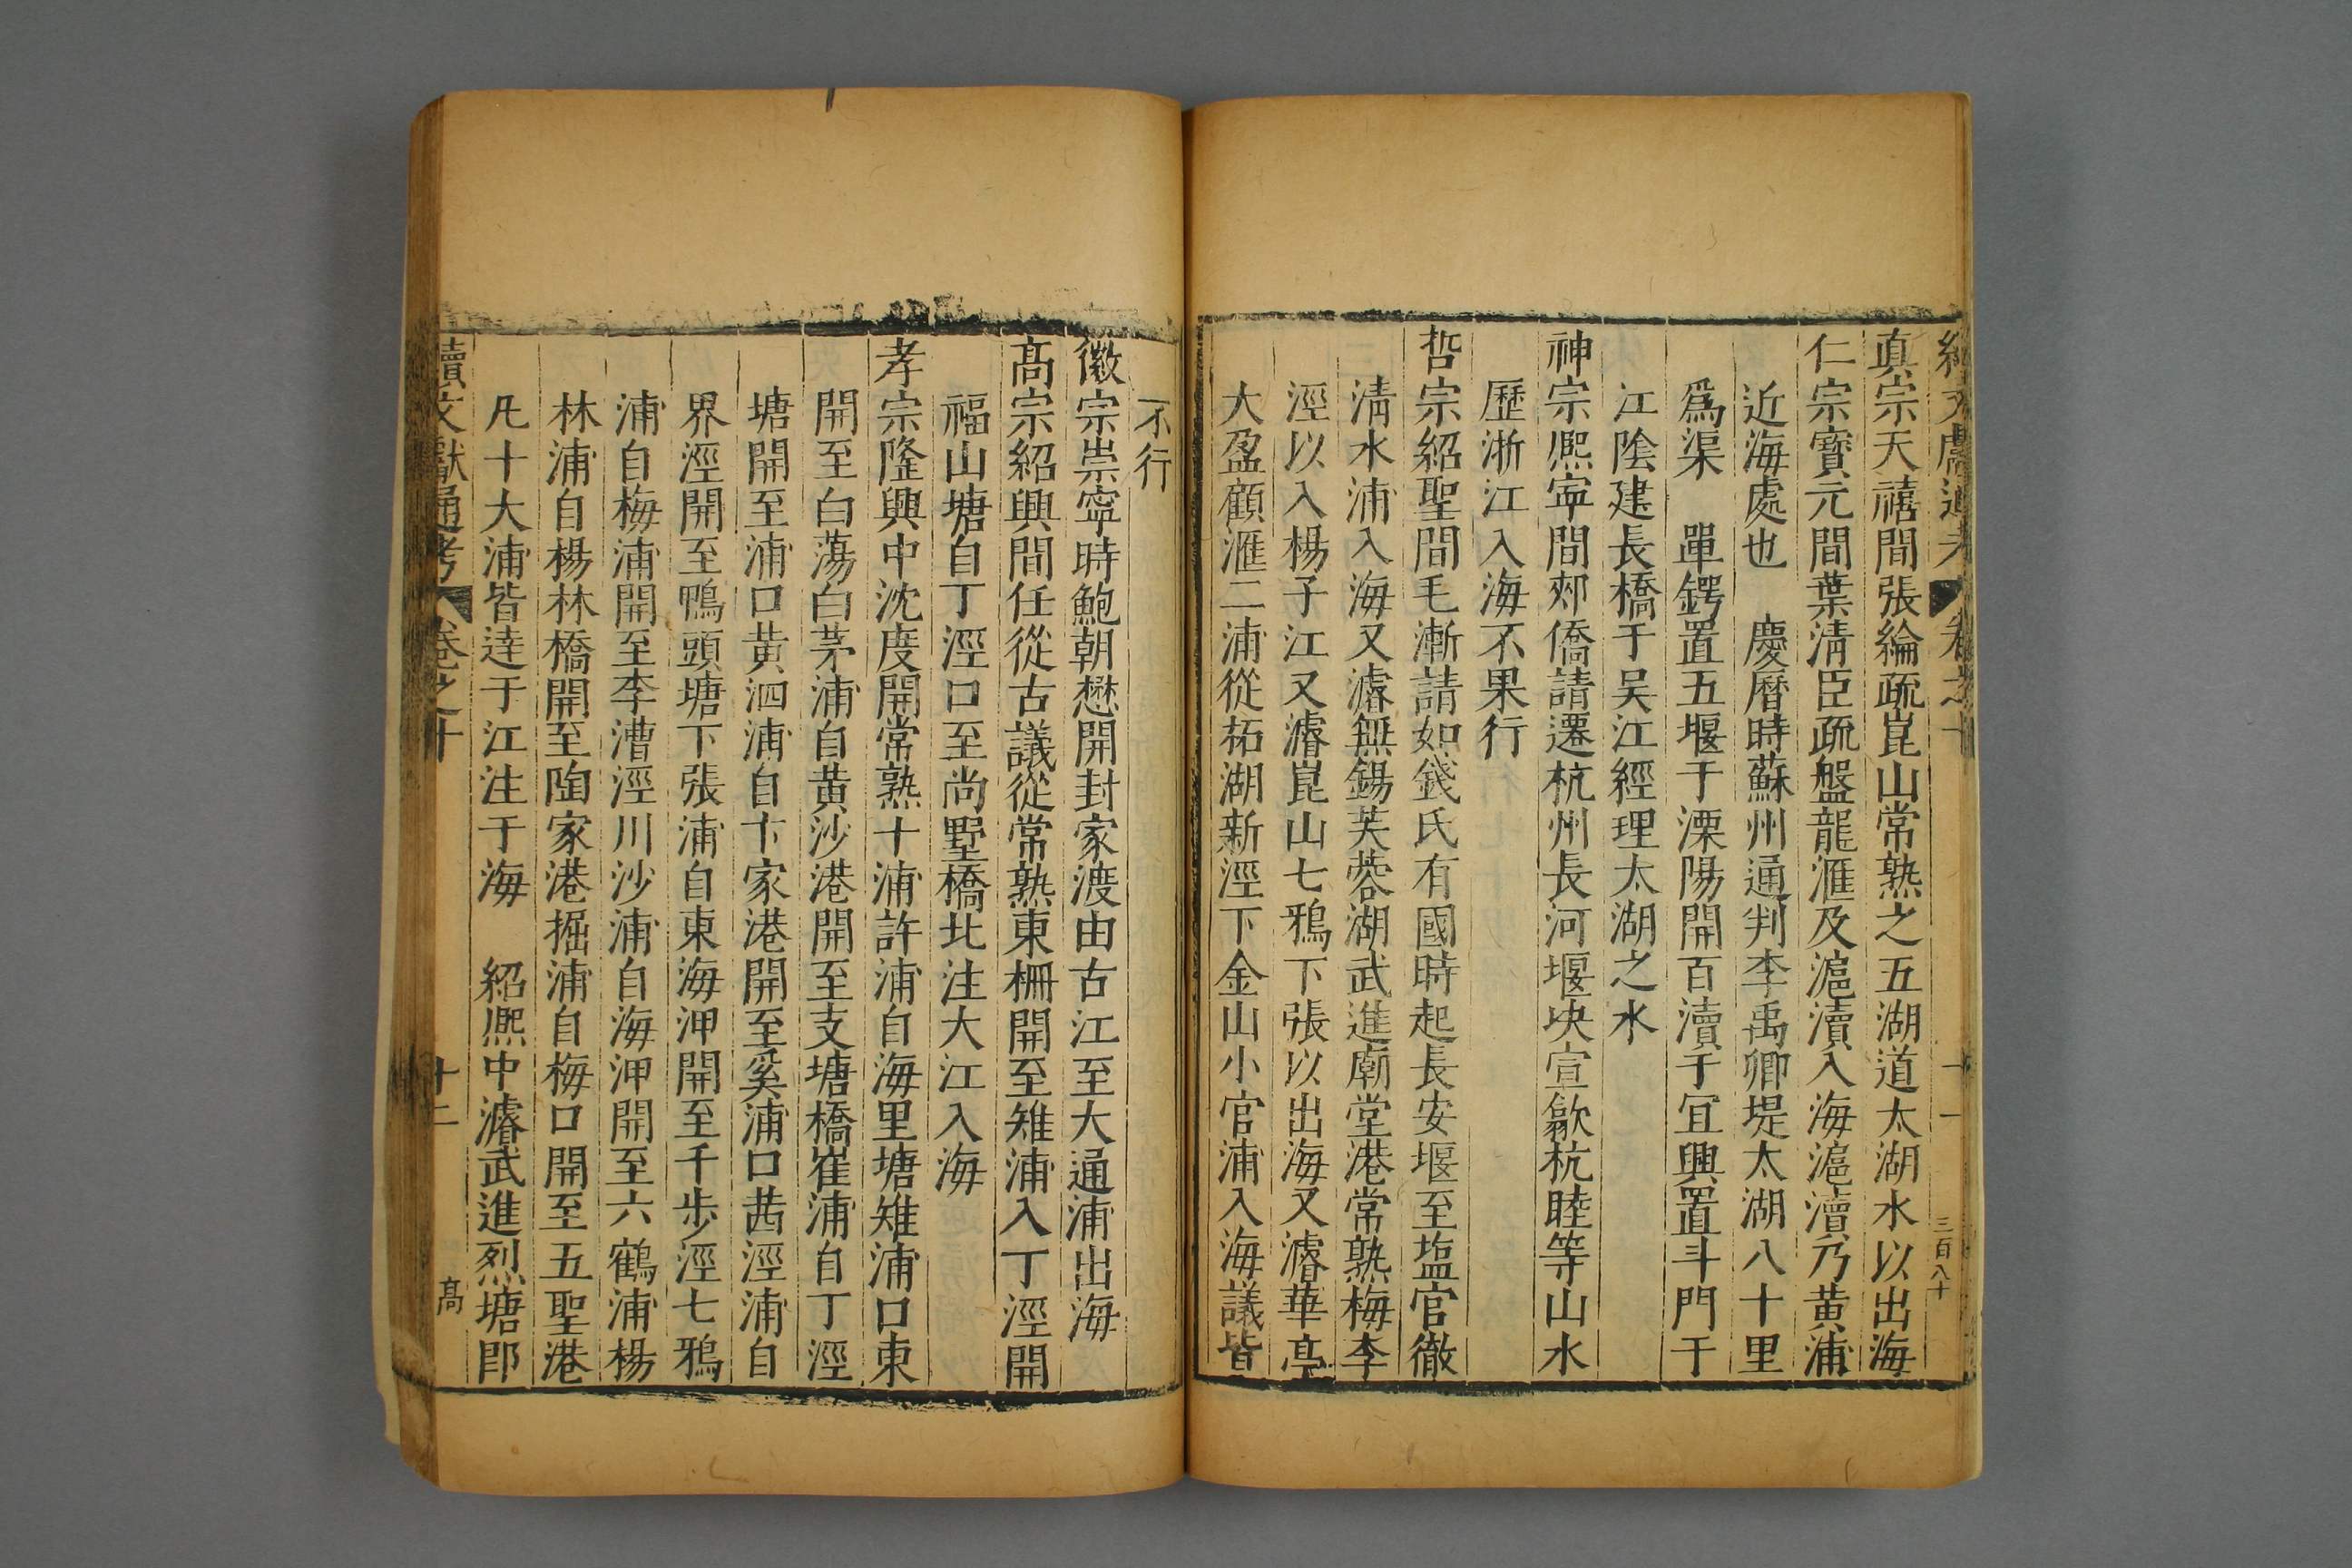 續文獻通考 卷之十 十一 三百八十
真宗天禧間張綸疏崑山常熟之五湖道太湖水以出海
仁宗寶元間葉清臣疏盤龍滙及滬瀆入海滬瀆乃黄浦
近海處也 慶曆時蘇州通判李禹卿堤太湖八十里
爲渠 單鍔置五堰于溧陽開百瀆于宜興置斗門于
江陰建長橋于吴江經理太湖之水
神宗熈寧間郟僑請遷杭州長河堰决宣歙杭睦等山水
歷浙江入海不果行
哲宗紹聖間毛漸請如錢氏有國時起長安堰至塩官徹
清水浦入海又濬無錫芙蓉湖武進廟堂港常熟梅李
涇以入楊子江又濬崑山七鴉下張以出海又濬華亭
大盈顧滙二浦從柘湖新涇下金山小官浦入海議皆
不行
徽宗崇寧時鮑朝懋開封家渡由古江至大通浦出海
髙宗紹興間任從古議從常熟東柵開至雉浦入丁涇開
福山塘自丁涇口至尚墅橋北注大江入海
孝宗隆興中沈度開常熟十浦許浦自海里塘雉浦口東
開至白蕩白茅浦自黄沙港開至支塘橋崔浦自丁涇
塘開至浦口黄泗浦自卞家港開至奚浦口茜涇浦自
界涇開至鴨頭塘下張浦自東海泙開至千步涇七鴉
浦自梅浦開至李漕涇川沙浦自海泙開至六鶴浦楊
林浦自楊林橋開至陶家港掘浦自梅口開至五聖港
凡十大浦皆達于江注于海 紹熈中濬武進烈塘即
續文獻通考 卷之十 十二 髙